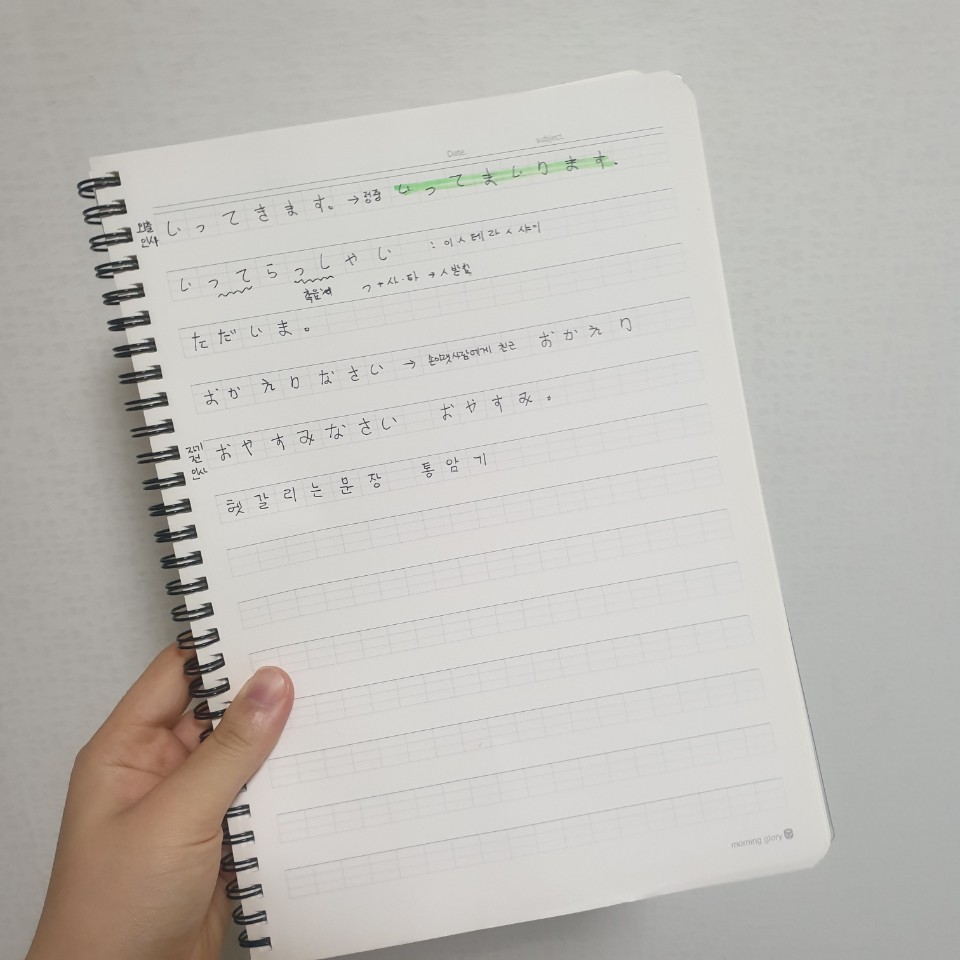 Date subject
외출 인사 いってきます。 → 정중 いってまいります.
いってらっしゃい : 이ㅅ테라ㅅ샤이
촉음 っ+사·타 → ㅅ받침
ただいま。
おかえりなさい → 손아랫사람에게 친근 おかえり
자기 전 인사 おやすみなさい おやすみ。
헷갈리는 문장 통암기
morning glory